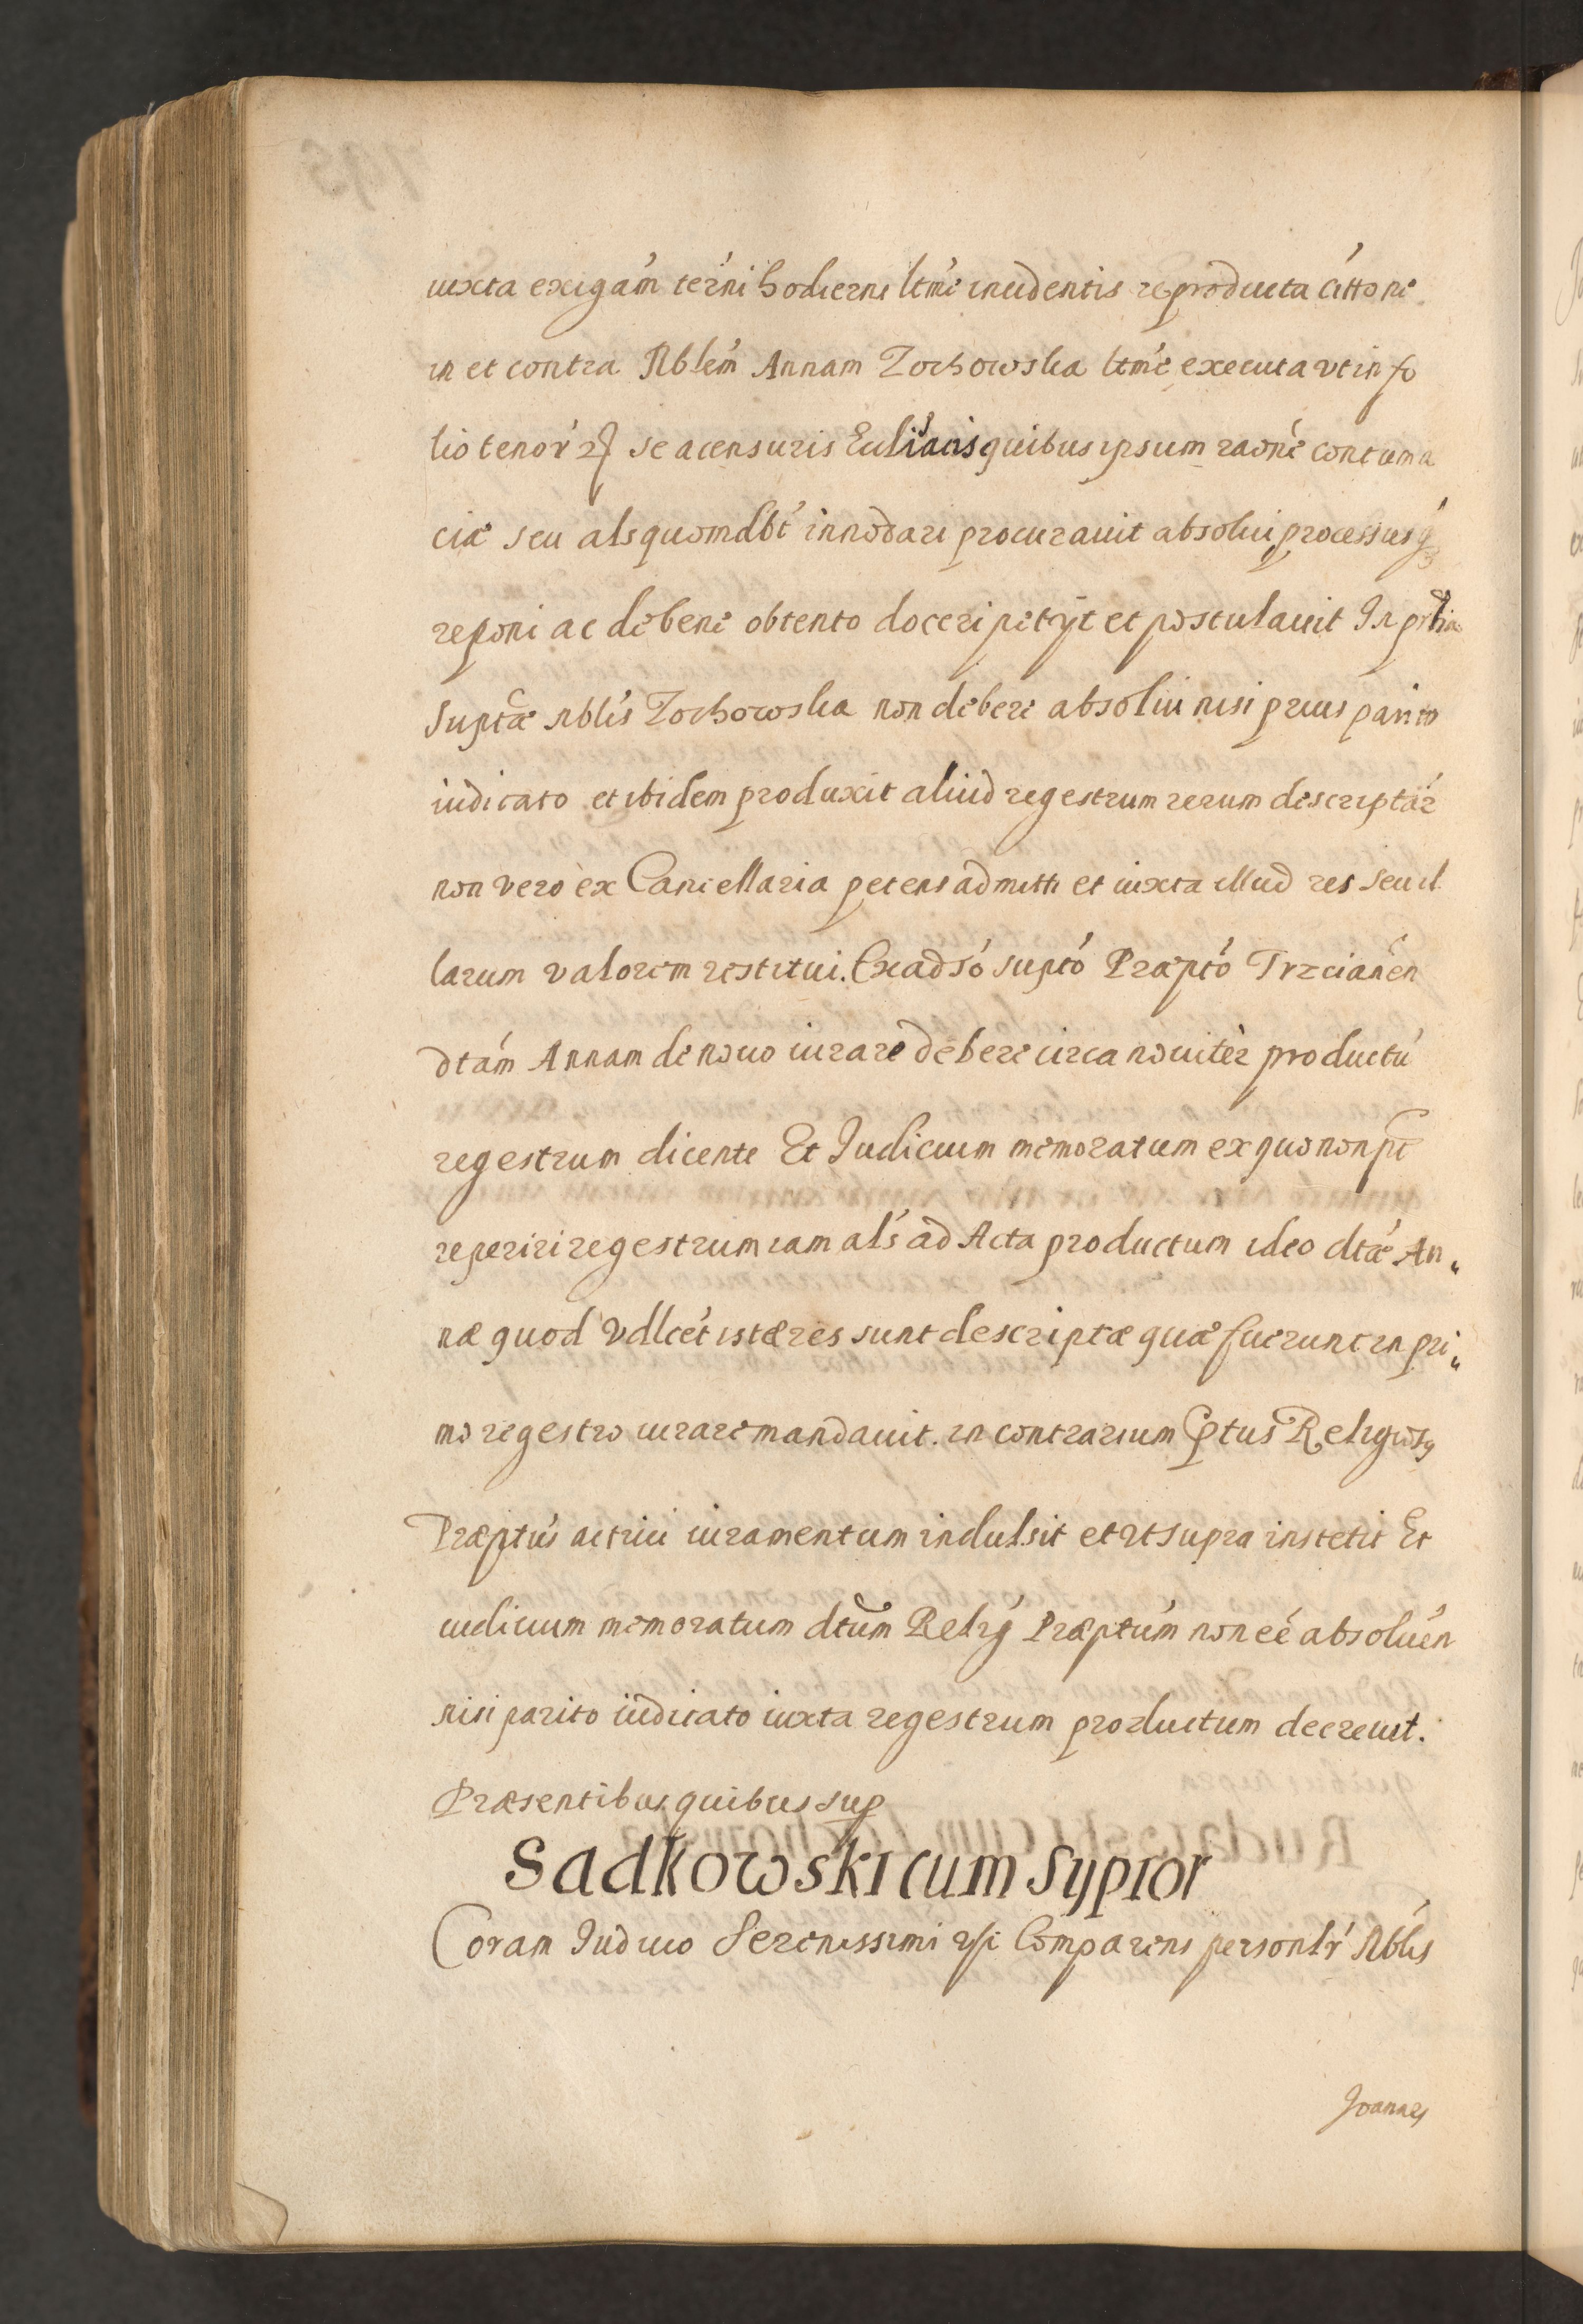 iuxta exigám términi hodierni ltmé incidentis reproducta cittoné
in et contra Nblém Annam Zochowska ltmé executa vt in fo
lio tenor se a censuris Eccliacis quibus ipsum raoné contuma
ciæ seu als quomdbt́ innodari procurauit absolui processusq́3
reponi ac de bene obtento doceri petÿt et postulauit In pñtia
suptæ Nblís Zochowska non debere absolui nisi prius parito
iudicato et ibidem produxit aliud regestrum rerum descriptár
non vero ex Cancellaria petens admitti et iuxta illud res seu il
larum valorem restitui. Ex adsó suptó Præptó Trzcianén
dtám Annam de nouo iurare debere circa nouitèr productú
regestrum dicente Et Judicium memoratum ex quo non pt
reperiri regestrum iam alś ad Acta productum ideo dtæ An„
næ quod vdlcét istæ res sunt descriptæ quæ fuerunt in pri„
mo regestro iurare mandauit. in contrarium Ptus Religios9
Præptús actrici iuramentum indulsit et vt supra institit Et
iudicium memoratum dtum Relig Præptúm non eé absoluén
nisi parito iudicato iuxta regestrum productum decreuit.
Præsentibus quibus sup
Sadkowski cum Sypior
Coram Judicio Serenissimi Comparens personlr' Nblis
Joannes
795